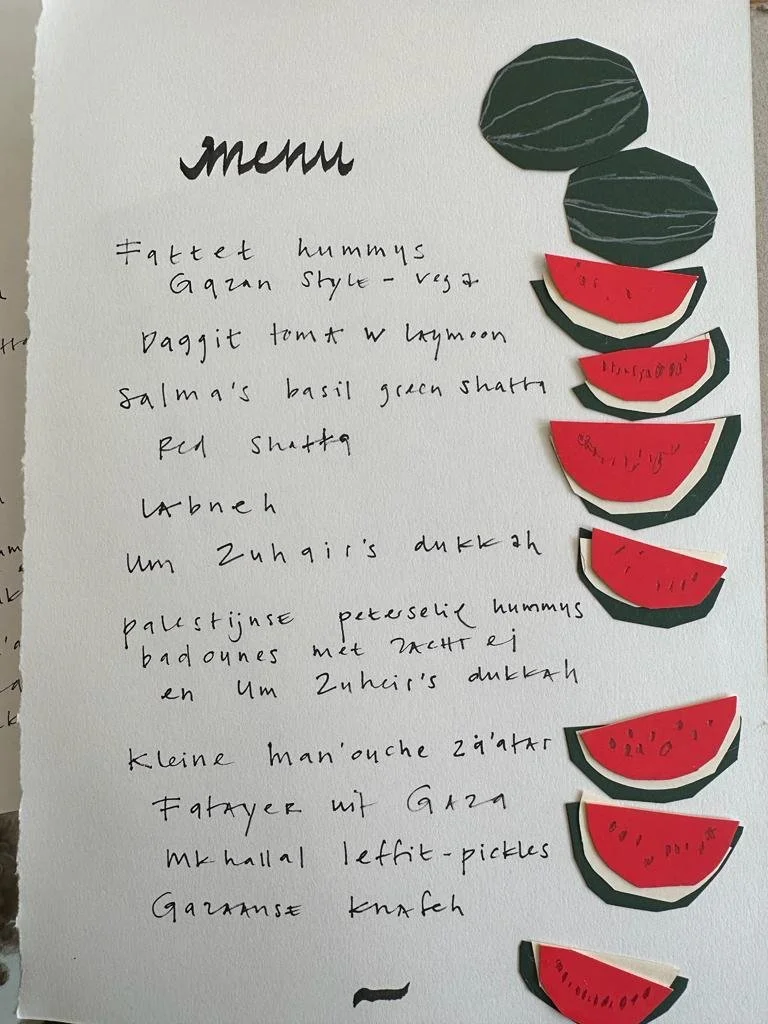 menu
Fattet hummus
Gazan style - vega
Daggit toma w laymoon
Salma's basil green shatta
Red shatta
Labneh
Um Zuhair's dukkah
palestijnse peterselie hummus
badounes met zacht ei
en Um Zuheir's dukkah
Kleine man'ouche zä'atar
Fatayer uit Gaza
Mkhallal leffit-pickles
Gazaanse knafeh